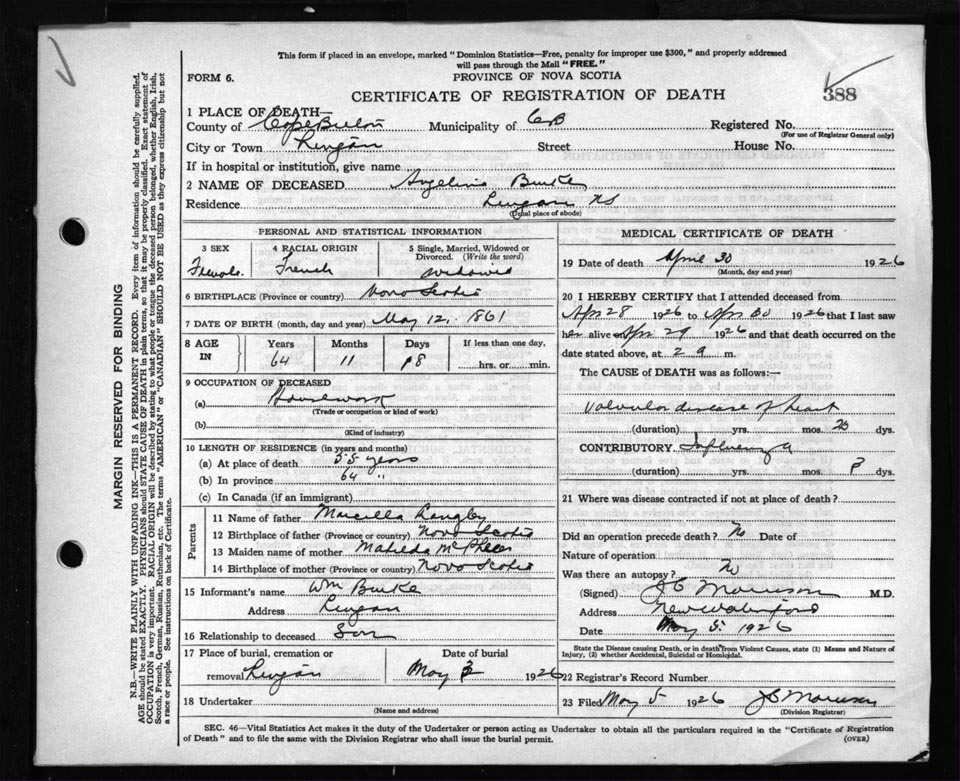 This form if placed in an envelope, marked "Dominion Statistics—Free, penalty for improper use $300," and properly addressed
will pass through the Mail "FREE."
FORM 6.
PROVINCE OF NOVA SCOTIA
CERTIFICATE OF REGISTRATION OF DEATH
388
1 PLACE OF DEATH—
County of Cape Breton Municipality of CB Registered No.
(For use of Registrar General only)
City or Town Lingan Street House No.
If in hospital or institution, give name
2 NAME OF DECEASED Angelina Burke
Residence Lingan NS
(Usual place of abode)
PERSONAL AND STATISTICAL INFORMATION
3 SEX Female
4 RACIAL ORIGIN French
5 Single, Married, Widowed or Divorced. (Write the word) widowed
6 BIRTHPLACE (Province or country) Nova Scotia
7 DATE OF BIRTH (month, day and year) May 12, 1861
8 AGE IN Years Months Days If less than one day,
64 11 18 hrs. or min.
9 OCCUPATION OF DECEASED
(a) Housework
(Trade or occupation or kind of work)
(b)
(Kind of industry)
10 LENGTH OF RESIDENCE (in years and months)
(a) At place of death 55 years
(b) In province 64 "
(c) In Canada (if an immigrant)
Parents
11 Name of father Langley
12 Birthplace of father (Province or country) Nova Scotia
13 Maiden name of mother Matilda
14 Birthplace of mother (Province or country) Nova Scotia
15 Informant's name Wm Burke
Address Lingan
16 Relationship to deceased Son
17 Place of burial, cremation or removal Lingan
Date of burial May 1926
18 Undertaker
(Name and address)
MEDICAL CERTIFICATE OF DEATH
19 Date of death April 30 1926
(Month, day and year)
20 I HEREBY CERTIFY that I attended deceased from
Apr 28 1926 to Apr 30 1926 that I last saw
her alive Apr 29 1926 and that death occurred on the
date stated above, at 2 a m.
The CAUSE of DEATH was as follows:—
Valvular disease of heart
(duration) yrs. mos. dys.
CONTRIBUTORY Influenza
(duration) yrs. mos. dys.
21 Where was disease contracted if not at place of death?
Did an operation precede death? No Date of
Nature of operation
Was there an autopsy? No
(Signed) Morrison M.D.
Address New Waterford
Date May 5 1926
State the Disease causing Death, or in death from Violent Causes, state (1) Means and Nature of
Injury, (2) whether Accidental, Suicidal or Homicidal.
22 Registrar's Record Number
23 Filed May 5 1926 Morrison
(Division Registrar)
SEC. 46—Vital Statistics Act makes it the duty of the Undertaker or person acting as Undertaker to obtain all the particulars required in the "Certificate of Registration
of Death" and to file the same with the Division Registrar who shall issue the burial permit.
(OVER)
MARGIN RESERVED FOR BINDING
N.B.—WRITE PLAINLY WITH UNFADING INK—THIS IS A PERMANENT RECORD. Every item of information should be carefully supplied.
AGE should be stated EXACTLY. PHYSICIANS should STATE CAUSE OF DEATH in plain terms, so that it may be properly classified. Exact statement of
OCCUPATION is very important. RACIAL ORIGIN will be described by stating to what people or tongue the deceased person belonged, whether English, Irish,
Scotch, French, German, Russian, Ruthenian, etc. The terms "AMERICAN" or "CANADIAN" SHOULD NOT BE USED as they express citizenship but not
a race or people. See instructions on back of Certificate.